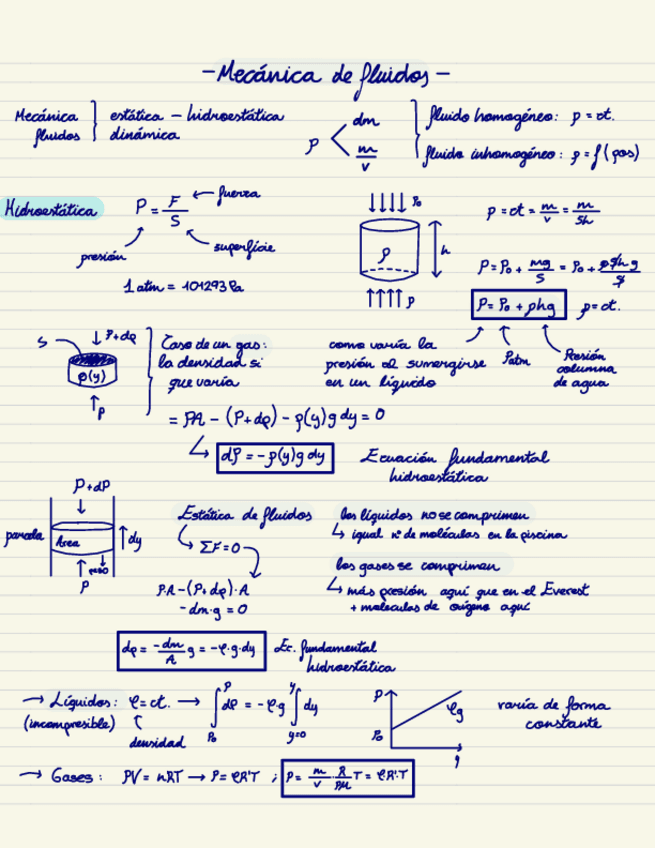 - Mecánica de fluidos -
Mecánica fluidos } estática - hidroestática
dinámica
ρ < dm
m/v
fluido homogéneo: ρ = ct.
fluido inhomogéneo: ρ = f(pos)
Hidroestática
P = F/S
fuerza
superfície
presión
1 atm = 101293 Pa
P₀
ρ
h
P
ρ = ct = m/v = m/Sh
P = P₀ + mg/S = P₀ + ρShg/S
P = P₀ + ρhg
ρ = ct.
Patm
Presión
columna
de agua
como varía la
presión al sumergirse
en un líquido
S
P+dp
ρ(y)
P
Caso de un gas:
la densidad si
que varía
= PA - (P+dp) - ρ(y)g dy = 0
dP = -ρ(y)g dy
Ecuación fundamental
hidroestática
P+dP
parada
Area
dy
P
Estática de fluidos
ΣF=0
P·A-(P+dp)·A
-dm·g = 0
los líquidos no se comprimen
↳ igual nº de moléculas en la piscina
los gases se comprimen
↳ más presión aquí que en el Everest
+ moléculas de oxígeno aquí
dp = -dm/A g = -ρ·g·dy
Ec. fundamental
hidroestática
→ Líquidos: ρ=ct. → ∫ᴾ_P₀ dp = -ρg ∫ʸ_y=0 dy
(incompresible)
densidad
P
P₀
ρg
varía de forma
constante
→ Gases: PV = nRT → P = ρR'T ; P = m/v · R/PM T = ρR'·T